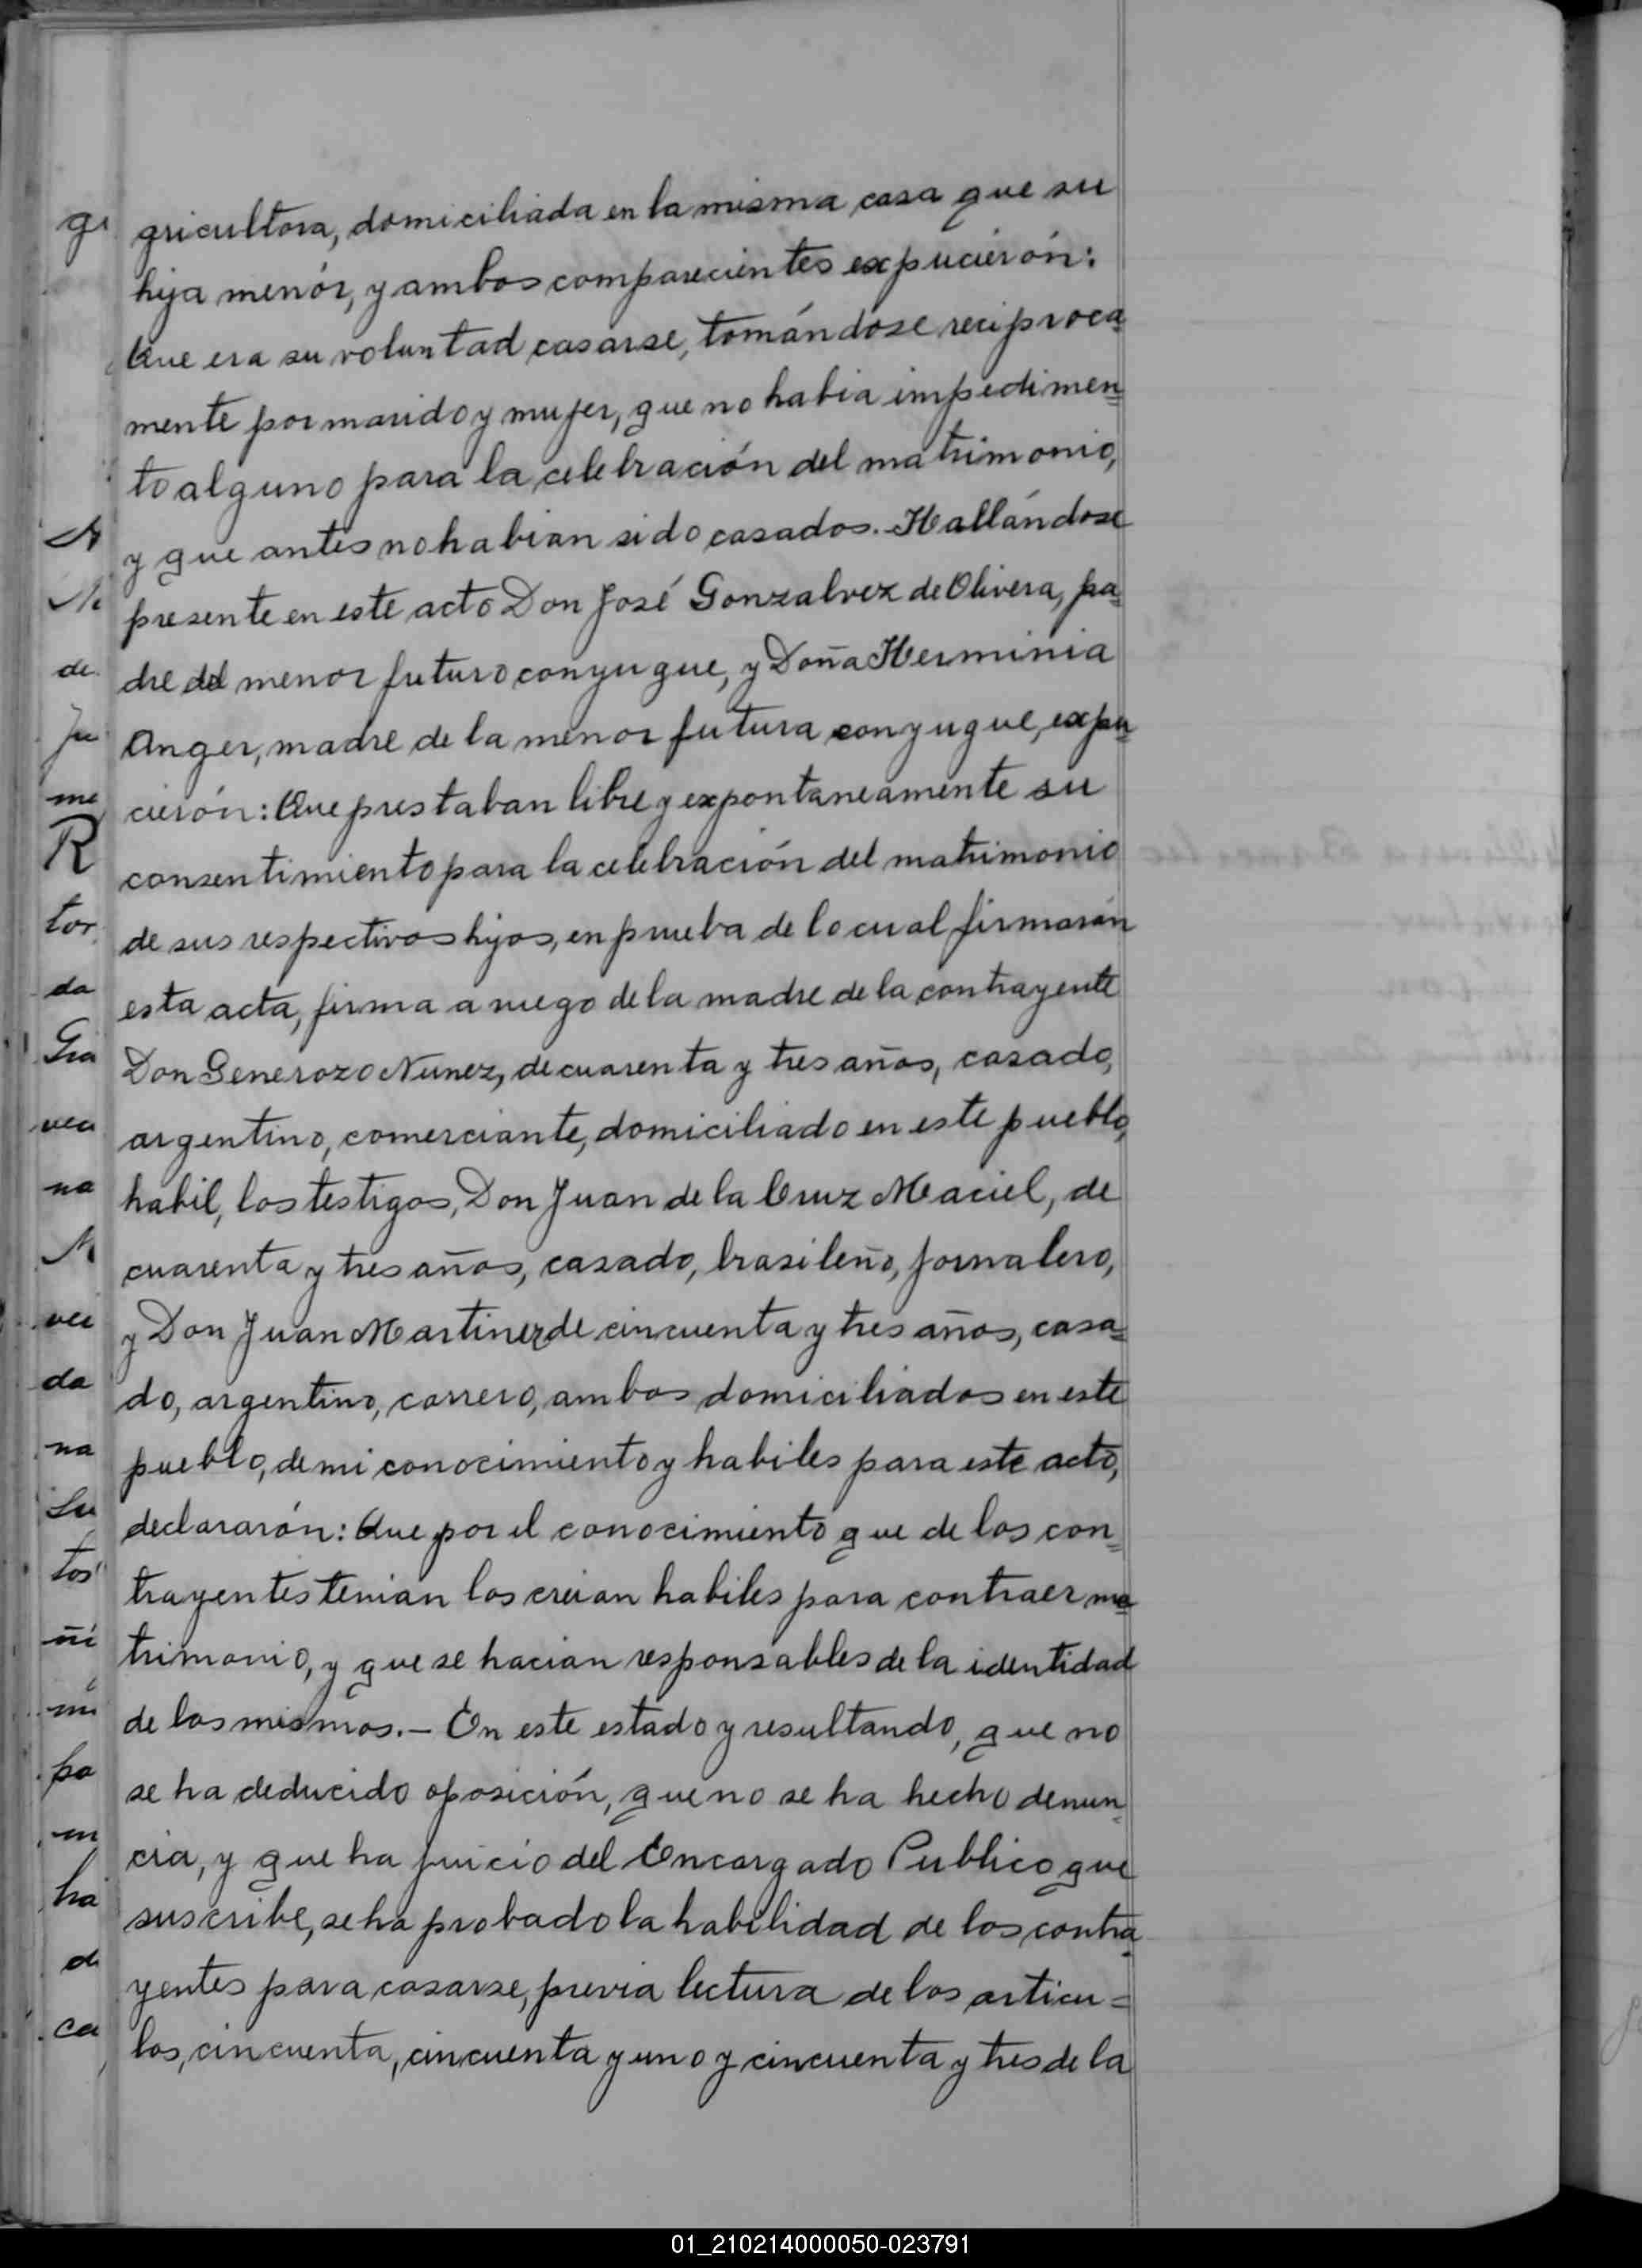 gricultora, domiciliada en la misma casa que su
hija menór, y ambos comparecientes expucierón:
Que era su voluntad casarse, tomándose reciproca=
mente por marido y mujer, que no habia impedimen=
to alguno para la celebración del matrimonio,
y que antes no habian sido casados.- Hallándose
presente en este acto Don José Gonzalvez de Olivera, pa=
dre del menor futuro conyugue, y Doña Herminia
Anger, madre de la menor futura conyugue, expu=
cierón: Que prestaban libre y expontaneamente su
consentimiento para la celebración del matrimonio
de sus respectivos hijos, en prueba de lo cual firmarán
esta acta, firma a ruego de la madre de la contrayente
Don Generozo Nunez, de cuarenta y tres años, casado,
argentino, comerciante, domiciliado en este pueblo,
habil, los testigos, Don Juan de la Cruz Maciel, de
cuarenta y tres años, casado, brasileño, jornalero,
y Don Juan Martinez de cincuenta y tres años, casa=
do, argentino, carrero, ambos domiciliados en este
pueblo, de mi conocimiento y habiles para este acto,
declararón: Que por el conocimiento que de los con=
trayentes tenian los creian habiles para contraer ma=
trimonio, y que se hacian responsables de la identidad
de los mismos.- En este estado y resultando, que no
se ha deducido oposición, que no se ha hecho denun=
cia, y que ha juicio del Encargado Publico que
suscribe, se ha probado la habilidad de los contra=
yentes para casarse, previa lectura de los articu=
los, cincuenta, cincuenta y uno y cincuenta y tres de la
01_210214000050-023791